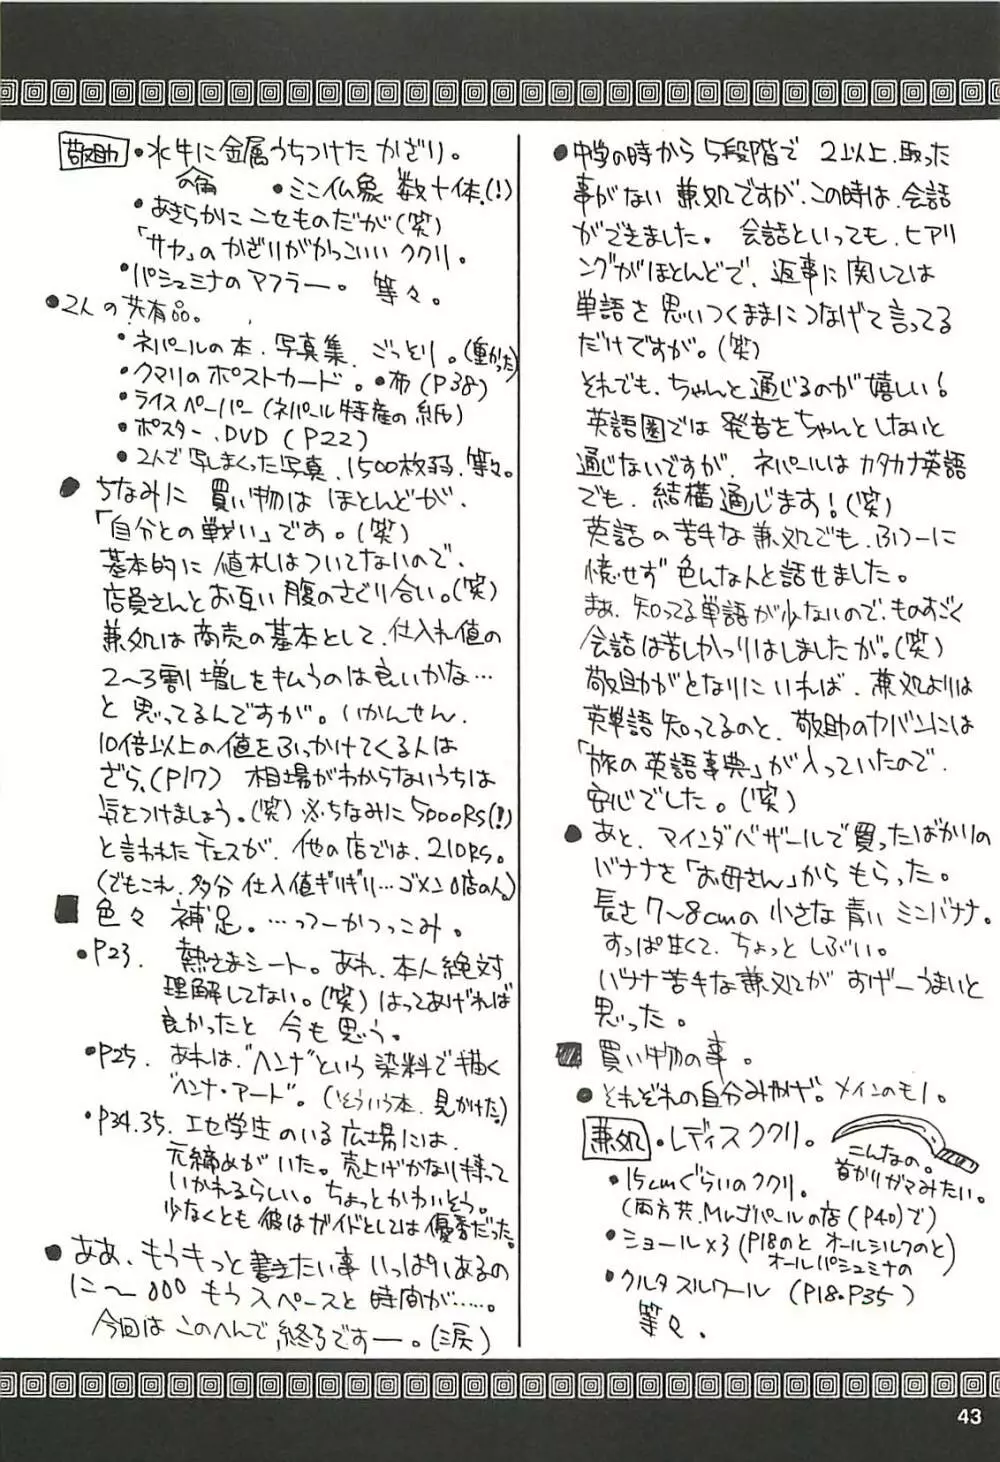 ●中学の時から5段階で 2以上、取った
事がない 兼処ですが、この時は、会話
ができました。 会話といっても、ヒアリ
ングがほとんどで、返事に関しては
単語を思いつくままにつなげて言ってる
だけですが。(笑)
それでも、ちゃんと通じるのが嬉しい!
英語圏では発音をちゃんとしないと
通じないですが、ネパールはカタカナ英語
でも、結構通じます!(笑)
英語の苦手な兼処でも、ふつーに
憶せず色んな人と話せました。
まぁ、知ってる単語が少ないので、ものすごく
会話は苦しかったりはしましたが。(笑)
敬助がとなりにいれば、兼処よりは
英単語知ってるのと、敬助のカバンには
「旅の英語事典」が入っていたので、
安心でした。(笑)
●あと、マインダバザールで買ったばかりの
バナナを「お母さん」からもらった。
長さ7〜8cmの小さな青いミニバナナ。
すっぱ甘くて、ちょっとしぶい。
バナナ苦手な兼処がすげーうまいと
思った。
■買い物の事。
●それぞれの自分みやげ。メインのモノ。
兼処・レディスククリ。
こんなの。
首かりガマみたい。
・15cmぐらいのククリ。
(両方共、Mr.ゴパールの店(P40)で)
・ショール×3(P18のと オールシルクのと)
オールパシュミナの
・クルタスルワール (P18・P35)
等々。
敬助・水牛に金属うちつけたかざり。
の角
・ミニ仏象 数十体。(!)
・あきらかにニセものだが(笑)
「サヤ」のかざりがかっこいいククリ。
・パシュミナのマフラー。 等々。
●2人の共有品。
・ネパールの本、写真集、ごっとり。(重かった)
・クマリのポストカード。・布(P38)
・ライスペーパー(ネパール特産の紙)
・ポスター、DVD(P22)
・2人で写しまくった写真、1500枚弱、等々。
●ちなみに 買い物は ほとんどが、
「自分との戦い」です。(笑)
基本的に 値札はついてないので、
店員さんとお互い腹のさぐり合い。(笑)
兼処は商売の基本として、仕入れ値の
2〜3割増しを払うのは良いかな…
と思ってるんですが。いかんせん、
10倍以上の値をふっかけてくる人は
ざら、(P17) 相場がわからないうちは
気をつけましょう。(笑)※ちなみに5000Rs(!)
と言われたチェスが、他の店では、210Rs。
(でもこれ、多分仕入値ギリギリ…ゴメン店の人)
■色々 補足。…ってーかつっこみ。
・P23. 熱さまシート。あれ、本人絶対
理解してない。(笑)はってあげれば
良かったと 今も思う。
・P25. あれは、"ヘンナ"という染料で描く
"ヘンナ・アート"。(そういう本、見かけた)
・P34.35. エセ学生のいる広場には、
元締めがいた。売上げかなり持って
いかれるらしい。ちょっとかわいそう。
少なくとも彼はガイドとしては優秀だった。
●ああ、もうきっと書きたい事いっぱいあるの
に〜 もうスペースと時間が……。
今回はこのへんで終了ですー。(涙)
43